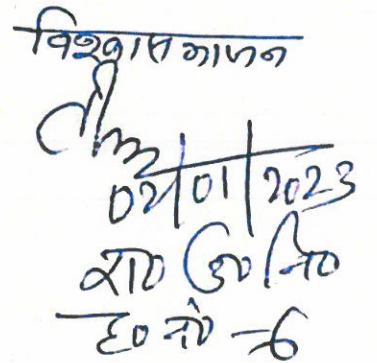 विश्वास भाजन
02/01/2023
रा० उ० नि०
ह० नं० -6